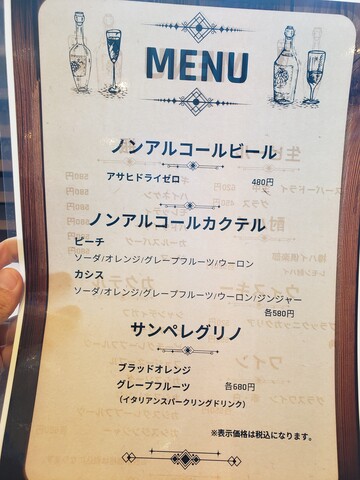 MENU
ノンアルコールビール
アサヒドライゼロ 480円
ノンアルコールカクテル
ピーチ
ソーダ/オレンジ/グレープフルーツ/ウーロン
カシス
ソーダ/オレンジ/グレープフルーツ/ウーロン/ジンジャー
各580円
サンペレグリノ
ブラッドオレンジ
グレープフルーツ 各580円
（イタリアンスパークリングドリンク）
※表示価格は税込になります。